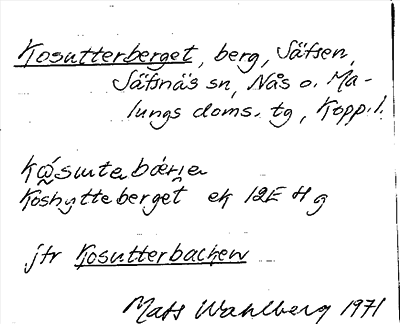 Kosutterberget, berg, Säfsen,
Säfsnäs sn, Nås o. Ma-
lungs doms. tg, Kopp. l.
Koshytteberget ek 12E H g
jfr Kosutterbacken
Mats Wahlberg 1971